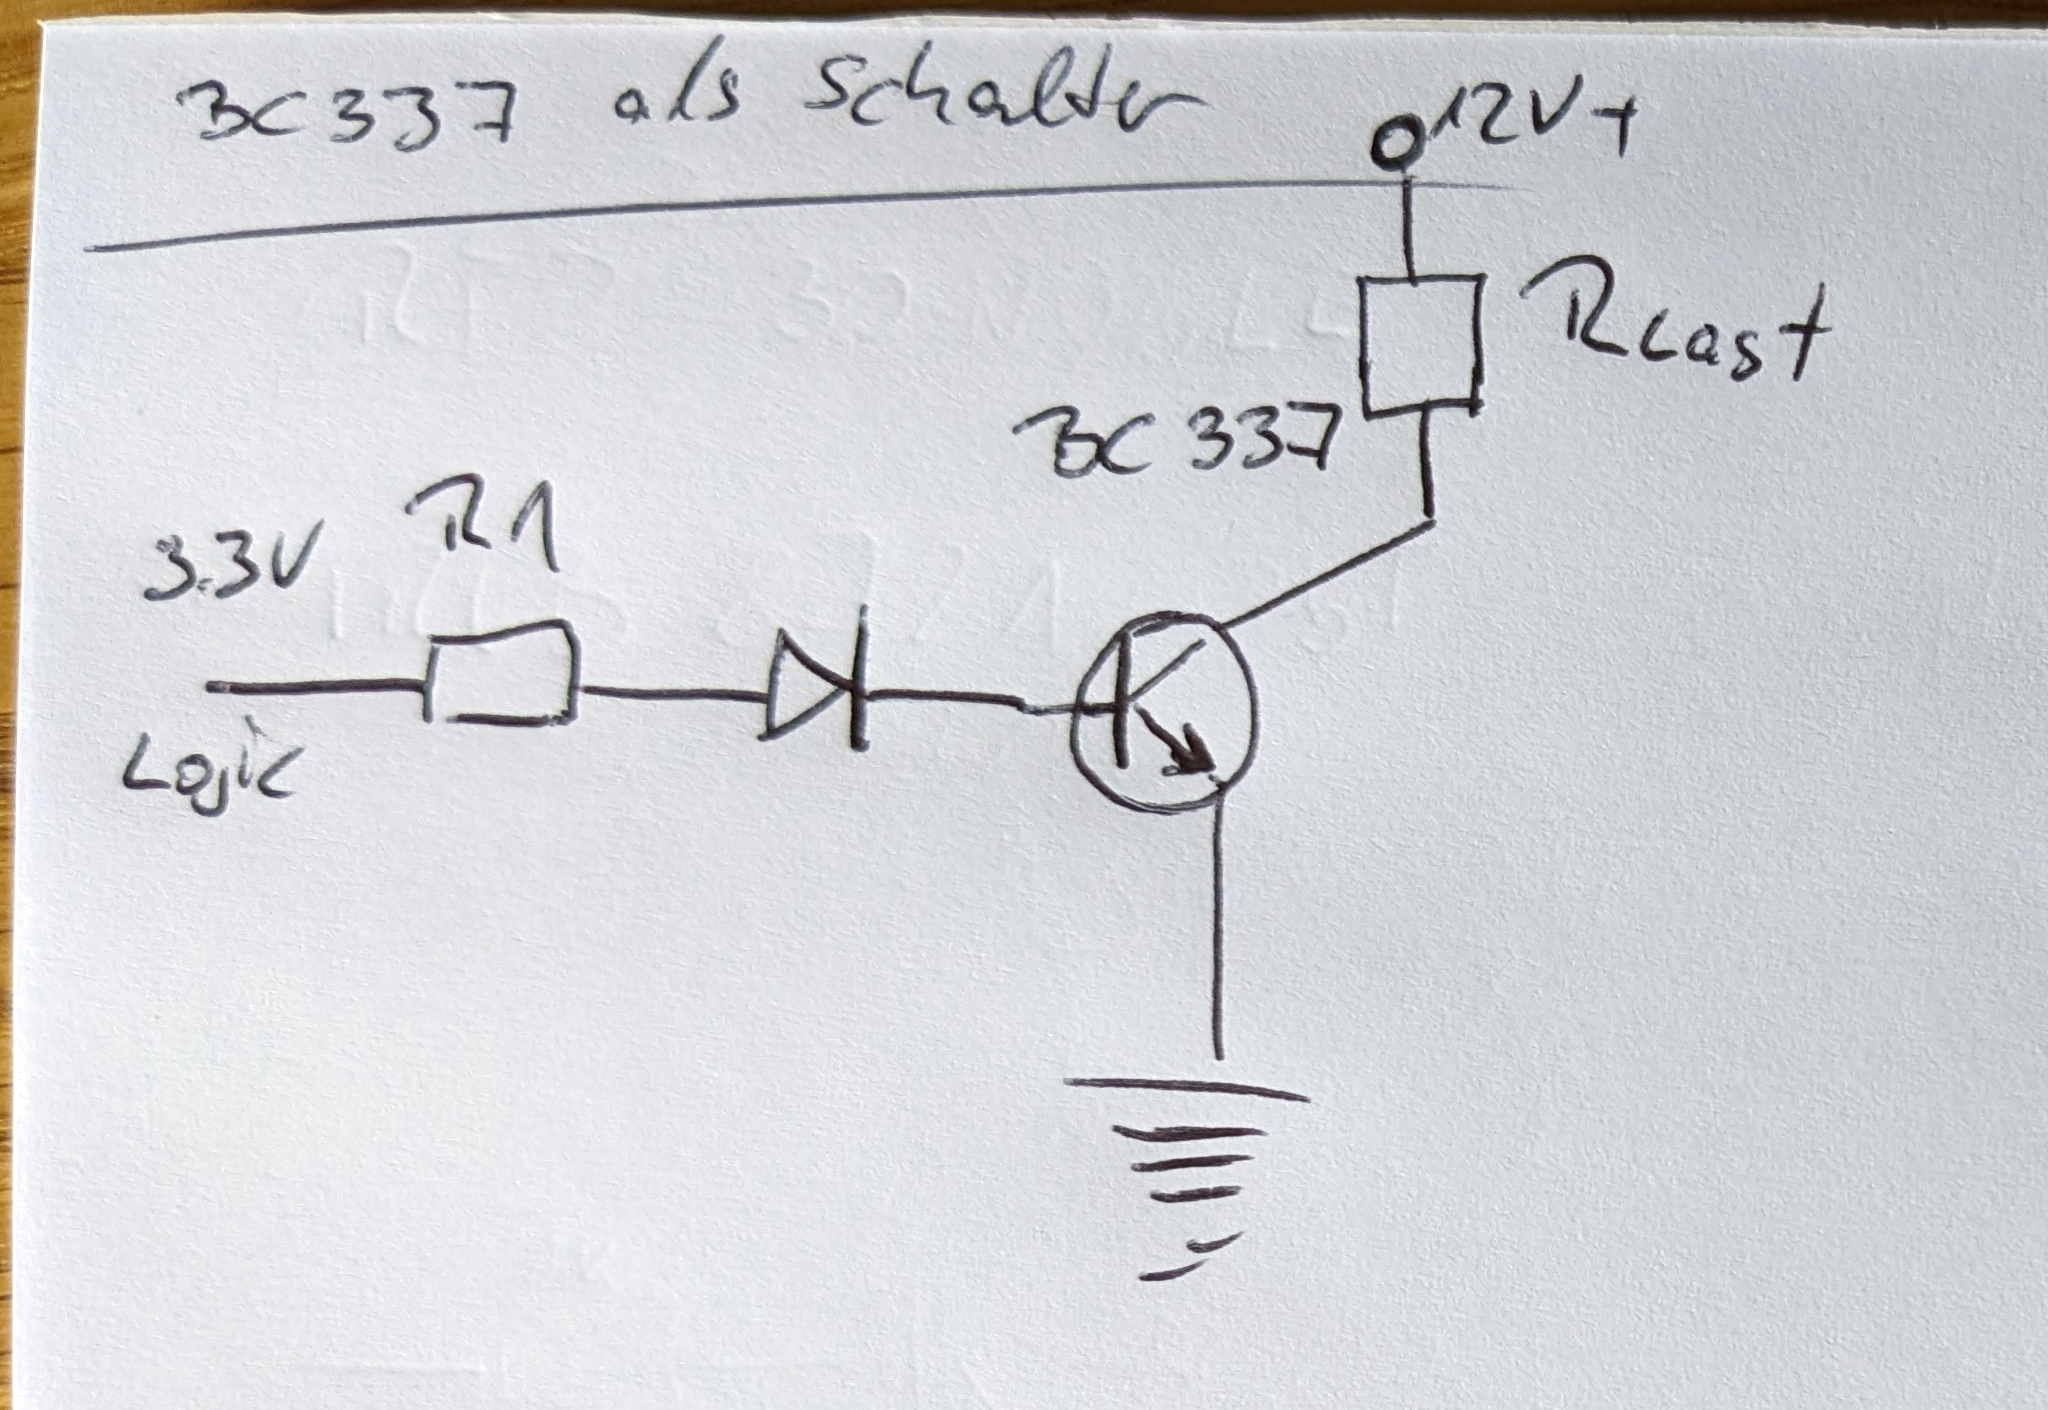 BC337 als Schalter
12V+
RLast
BC337
R1
3.3V
Logic